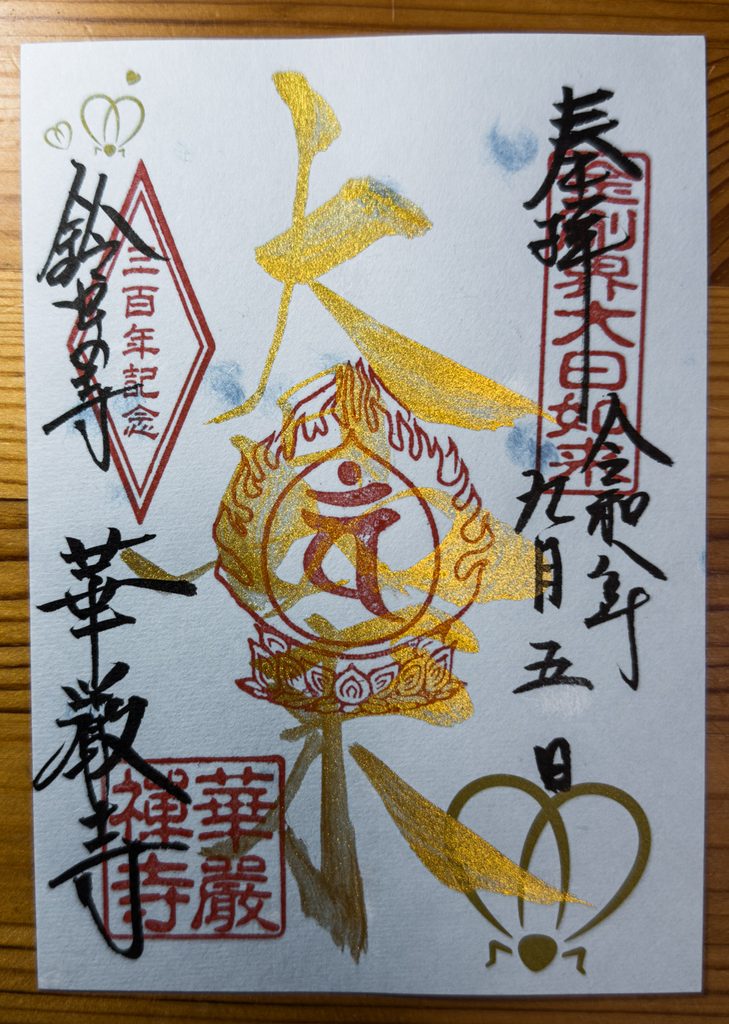 奉拝
金剛界大日如来
令和
年
九月五日
大
三百年記念
鈴虫の寺
華嚴寺
華嚴
禪寺